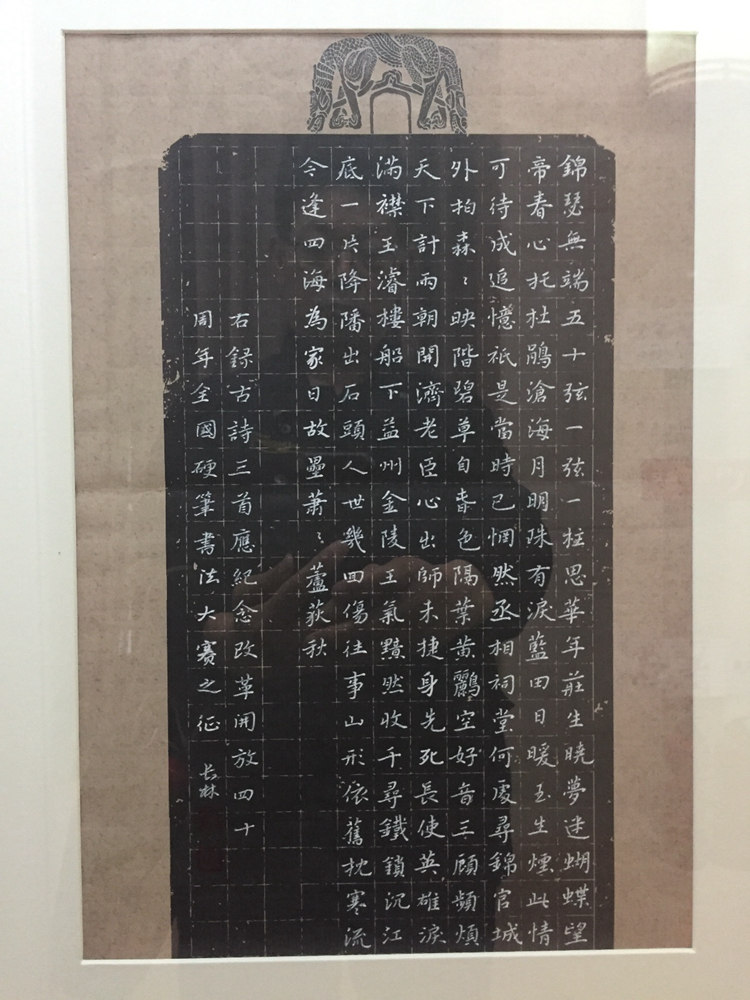 錦瑟無端五十弦一弦一柱思華年莊生曉夢迷蝴蝶望
帝春心托杜鵑滄海月明珠有淚藍田日暖玉生煙此情
可待成追憶祇是當時已惘然丞相祠堂何處尋錦官城
外柏森〻映階碧草自春色隔葉黃鸝空好音三顧頻煩
天下計兩朝開濟老臣心出師未捷身先死長使英雄淚
滿襟王濬樓船下益州金陵王氣黯然收千尋鐵鎖沉江
底一片降旛出石頭人世幾回傷往事山形依舊枕寒流
今逢四海為家日故壘蕭〻蘆荻秋
右錄古詩三首應紀念改革開放四十
周年全國硬筆書法大賽之征 長林